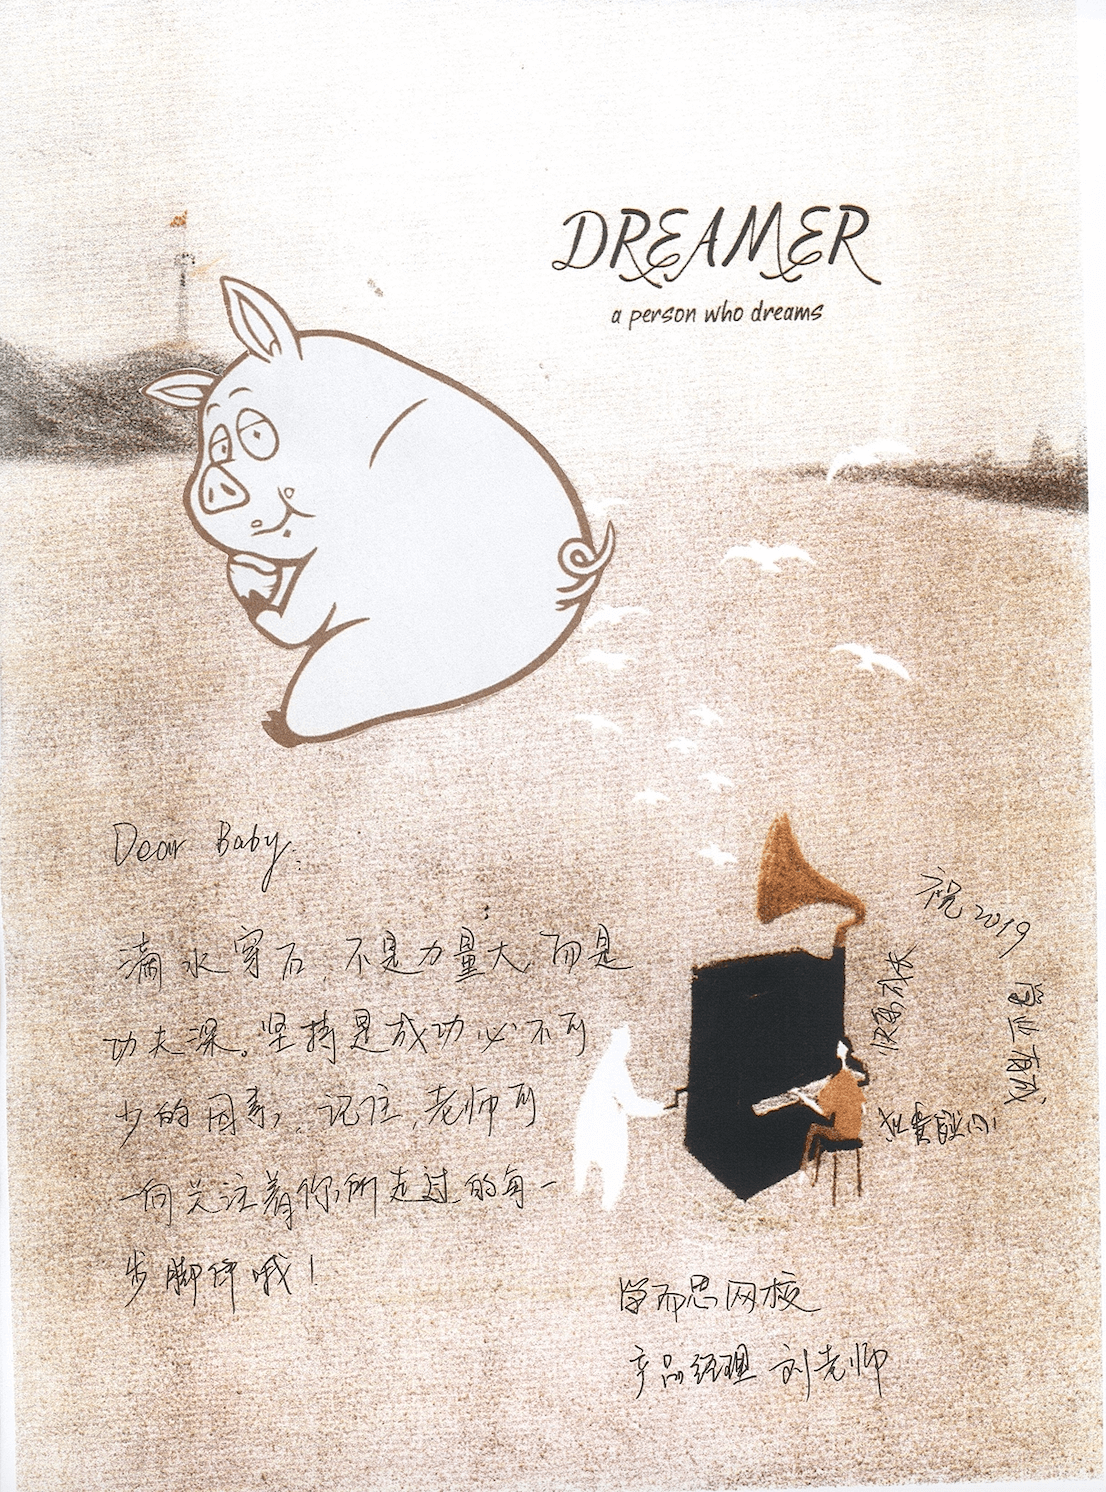 DREAMER
a person who dreams
Dear Baby:
滴水穿石,不是力量大,而是
功夫深。坚持是成功必不可
少的因素,记住,老师可
一向关注着你所走过的每一
步脚印哦!
祝2019
学业有成
学而思网校
产品经理 刘老师